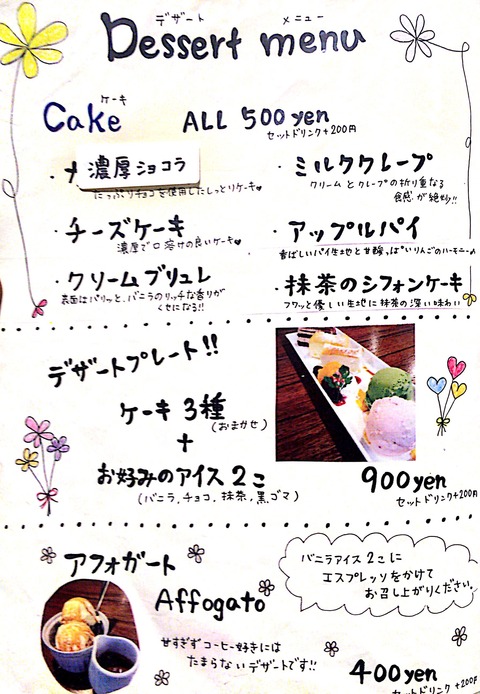 デザート メニュー
Dessert menu
ケーキ
Cake ALL 500 yen
セットドリンク+200円
・濃厚ショコラ
たっぷりチョコを使用したしっとりケーキ♥
・チーズケーキ
濃厚で口溶けの良いケーキ♥
・クリームブリュレ
表面はパリッと、バニラのリッチな香りが
くせになる!!
・ミルククレープ
クリームとクレープの折り重なる
食感が絶妙!!
・アップルパイ
香ばしいパイ生地と甘酸っぱいりんごのハーモニー♪
・抹茶のシフォンケーキ
フワッと優しい生地に抹茶の深い味わい
デザートプレート!!
ケーキ3種
(おまかせ)
+
お好みのアイス2こ
(バニラ,チョコ,抹茶,黒ゴマ)
900yen
セットドリンク+200円
アフォガート
Affogato
バニラアイス2こに
エスプレッソをかけて
お召し上がりください。
甘すぎずコーヒー好きには
たまらないデザートです!!
400yen
セットドリンク+200円